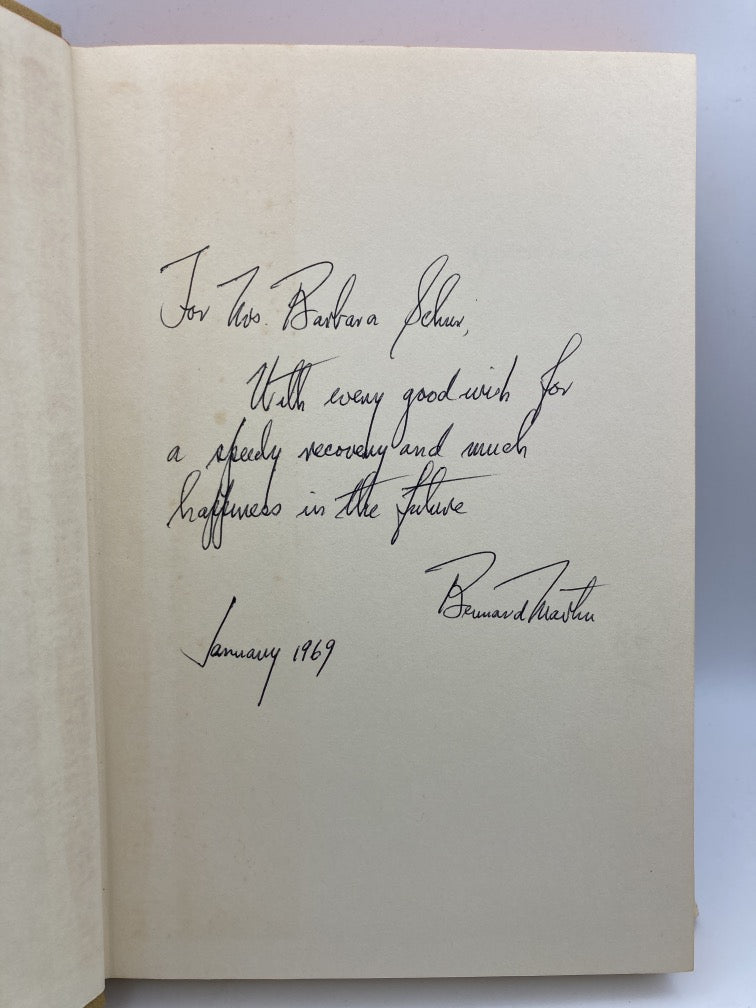 For Mrs. Barbara Schur,
With every good wish for
a speedy recovery and much
happiness in the future
Bernard Martin
January 1969